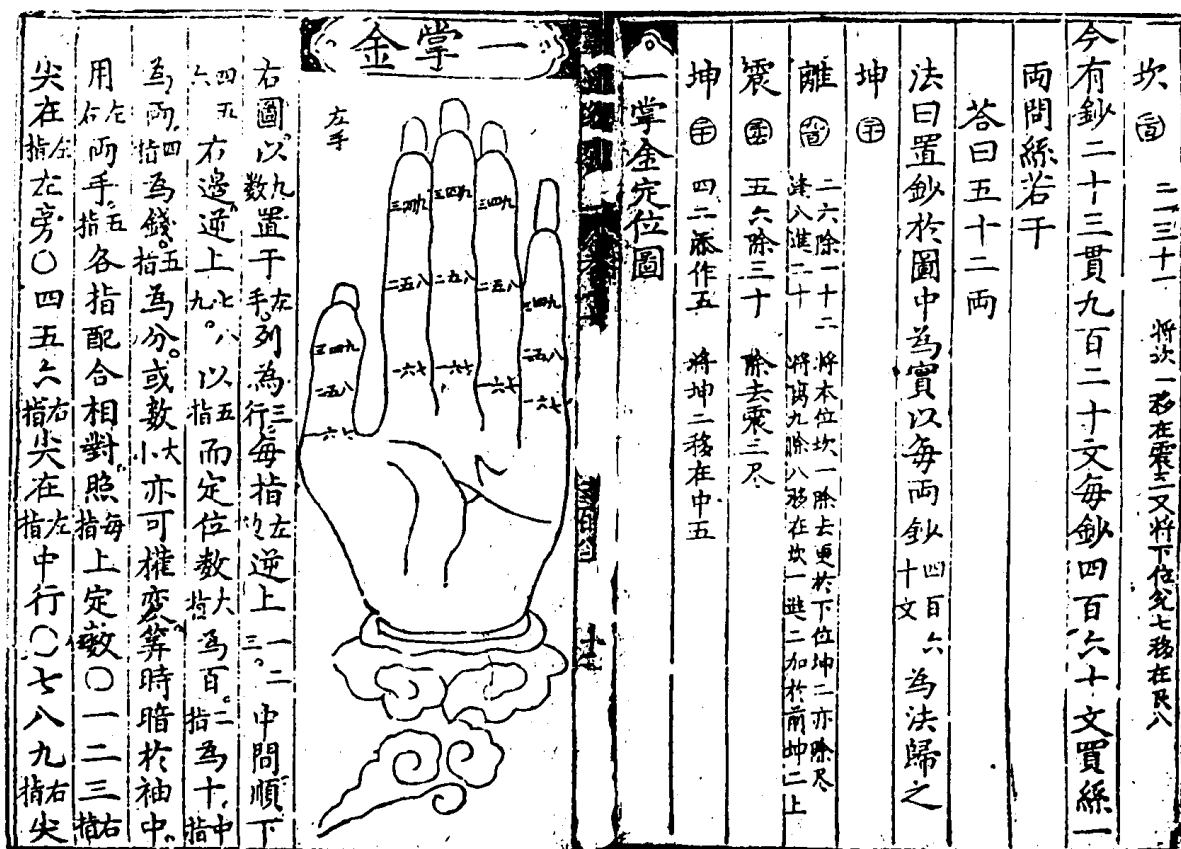 坎 二一三十一 将次一移在震三又将下位兌七移在艮八
今有鈔二十三貫九百二十文每鈔四百六十文買絲一
両問絲若干
答曰五十二両
法曰置鈔於圖中為實以每両鈔四百六十文為法歸之
坤
離 二六除一十二 逢八進二十 将本位坎一除去更於下位坤二亦除尽 将離九除八移在坎一進二加於前坤二上
震 五六除三十 除去震三尽
坤 四二添作五 将坤二移在中五
一掌金定位圖
一掌金
左手
三四九 三四九 三四九 三四九 三四九
二五八 二五八 二五八 二五八 二五八
一六七 一六七 一六七 一六七 一六七
右圖以九数置于左手列為三行每指左邊逆上一二三中間順下
四五六右邊逆上七八九以五指而定位数大指為百二指為十中指
為両四指為錢五指為分或数大小亦可權变筭時暗於袖中
用左右両手五指各指配合相對照每指上定数〇一二三右指
尖在左指左旁〇四五六右指尖在左指中行〇七八九右指尖